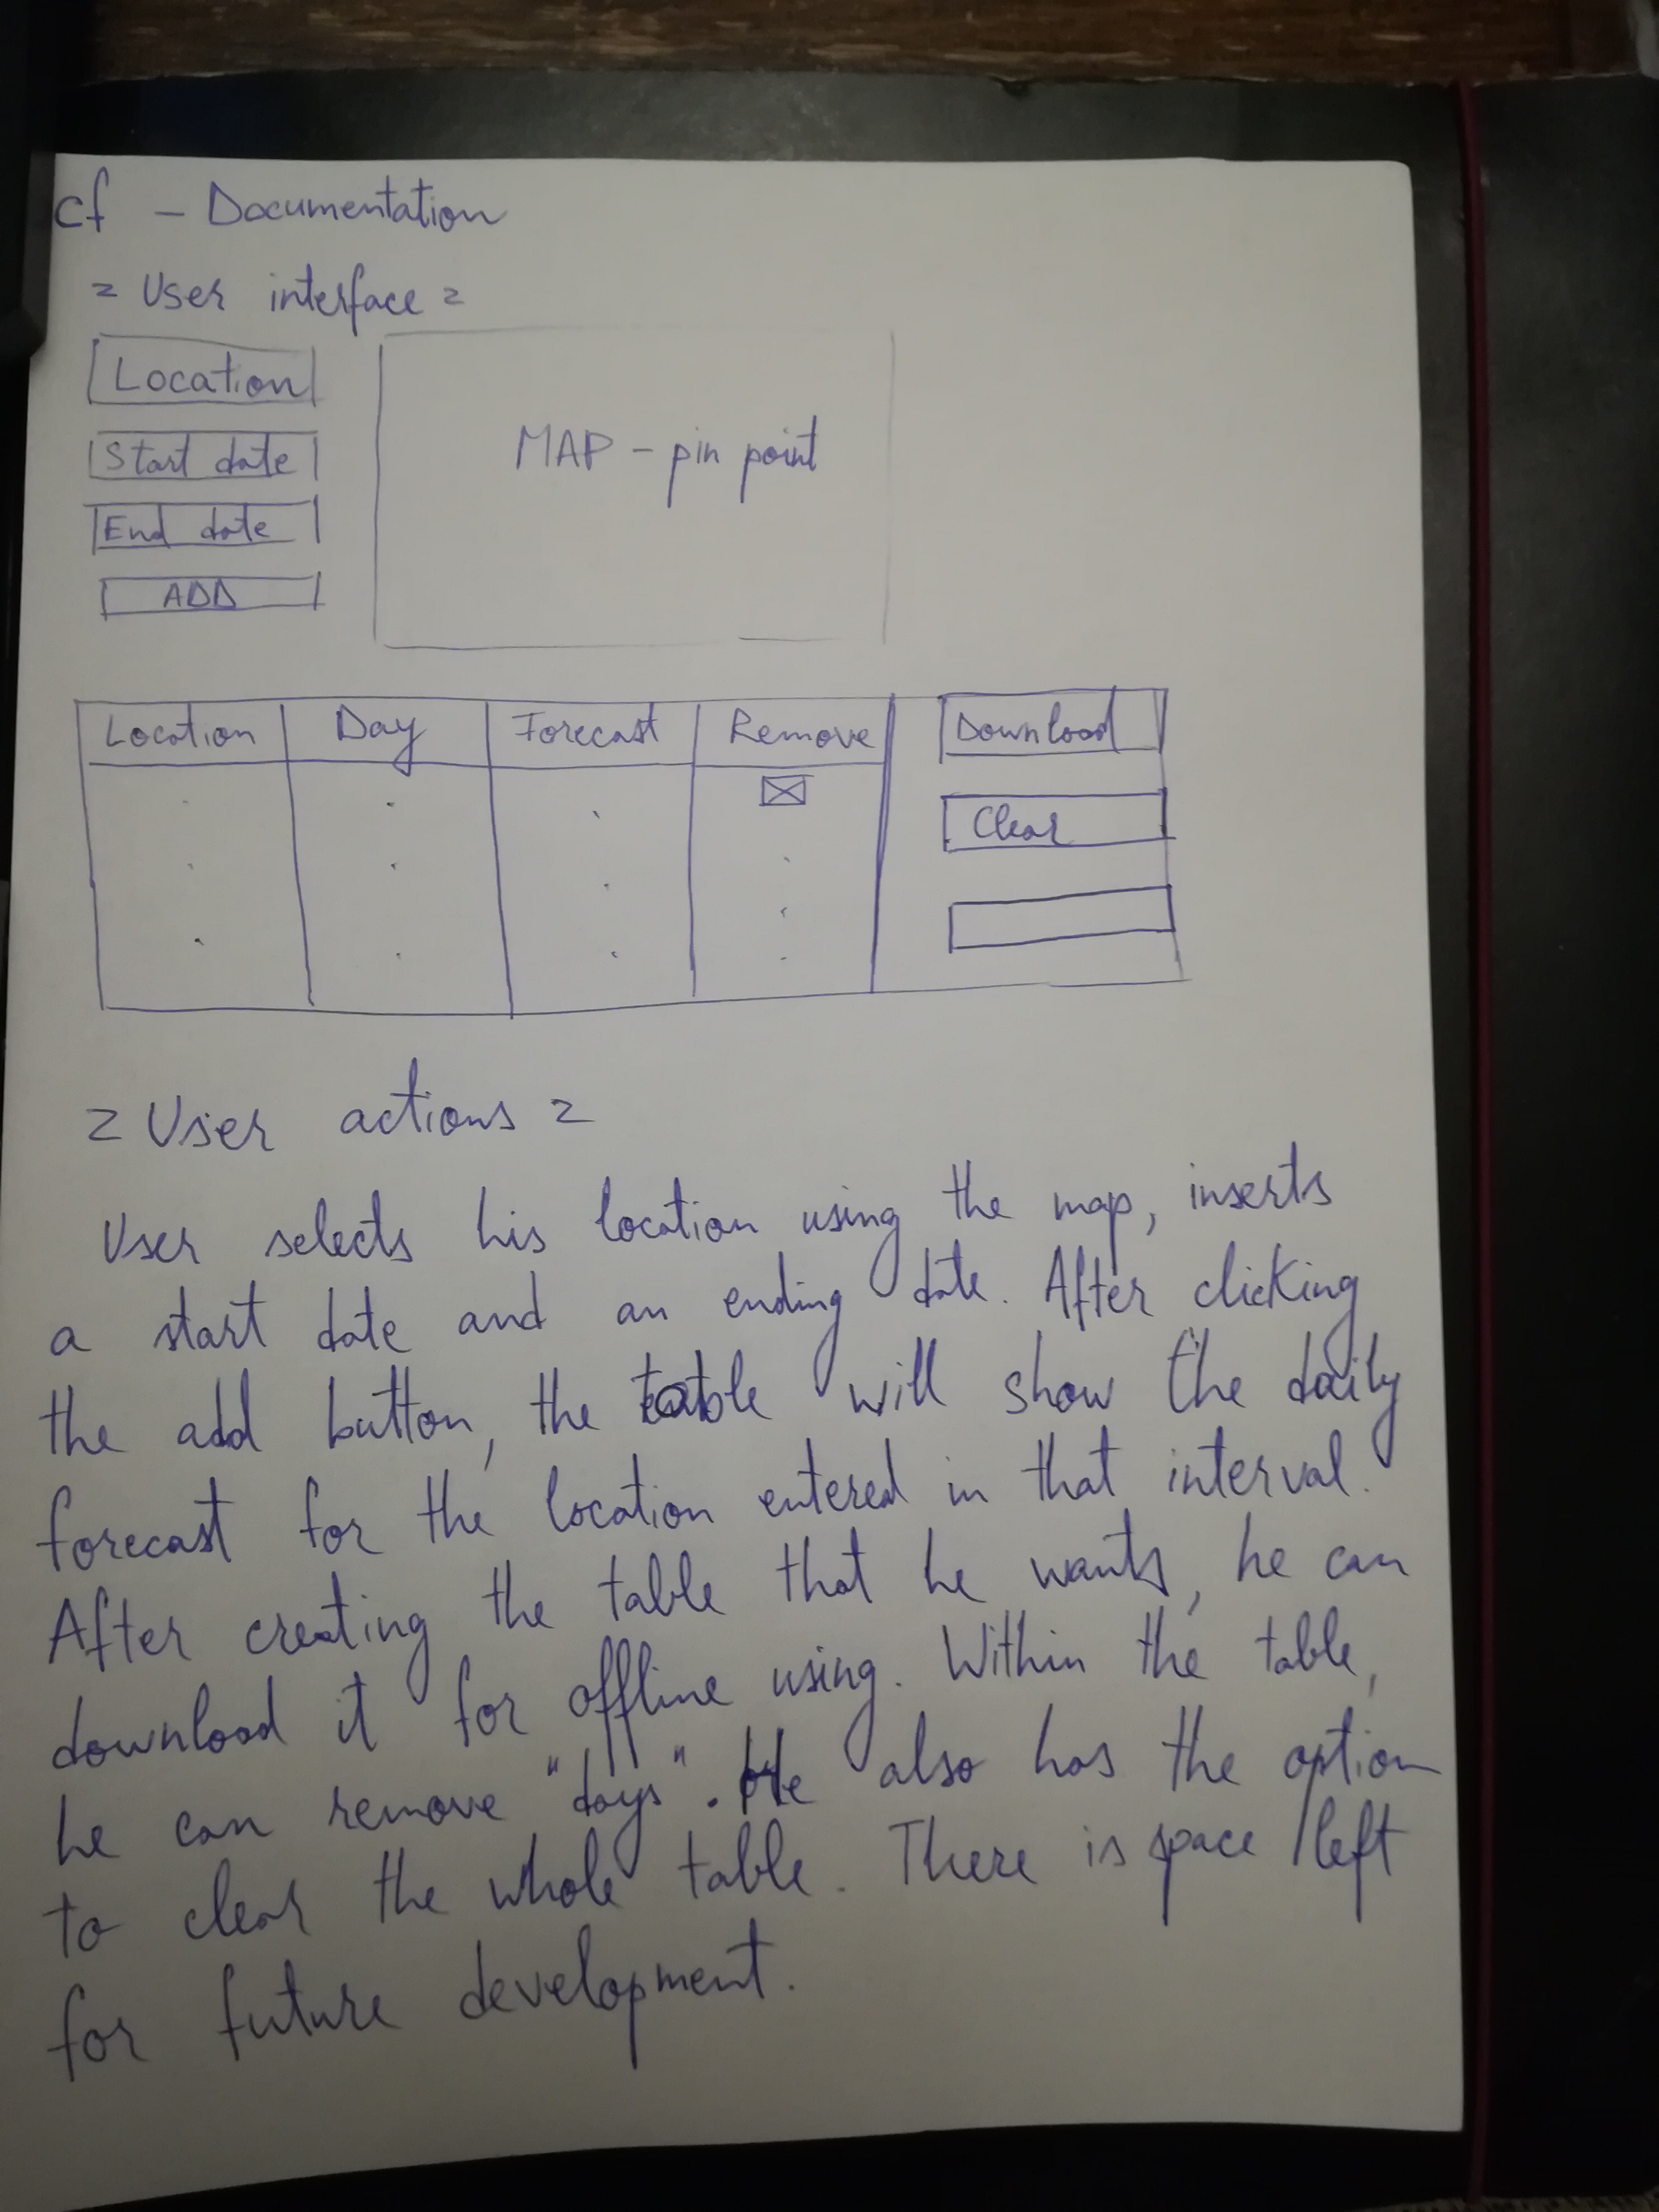 cf - Documentation
= User interface =
Location
Start date
End date
ADD
MAP - pin point
Location Day Forecast Remove
Download
Clear
= User actions =
User selects his location using the map, inserts
a start date and an ending date. After clicking
the add button, the table will show the daily
forecast for the location entered in that interval.
After creating the table that he wants, he can
download it for offline using. Within the table,
he can remove "days". He also has the option
to clear the whole table. There is space left
for future development.